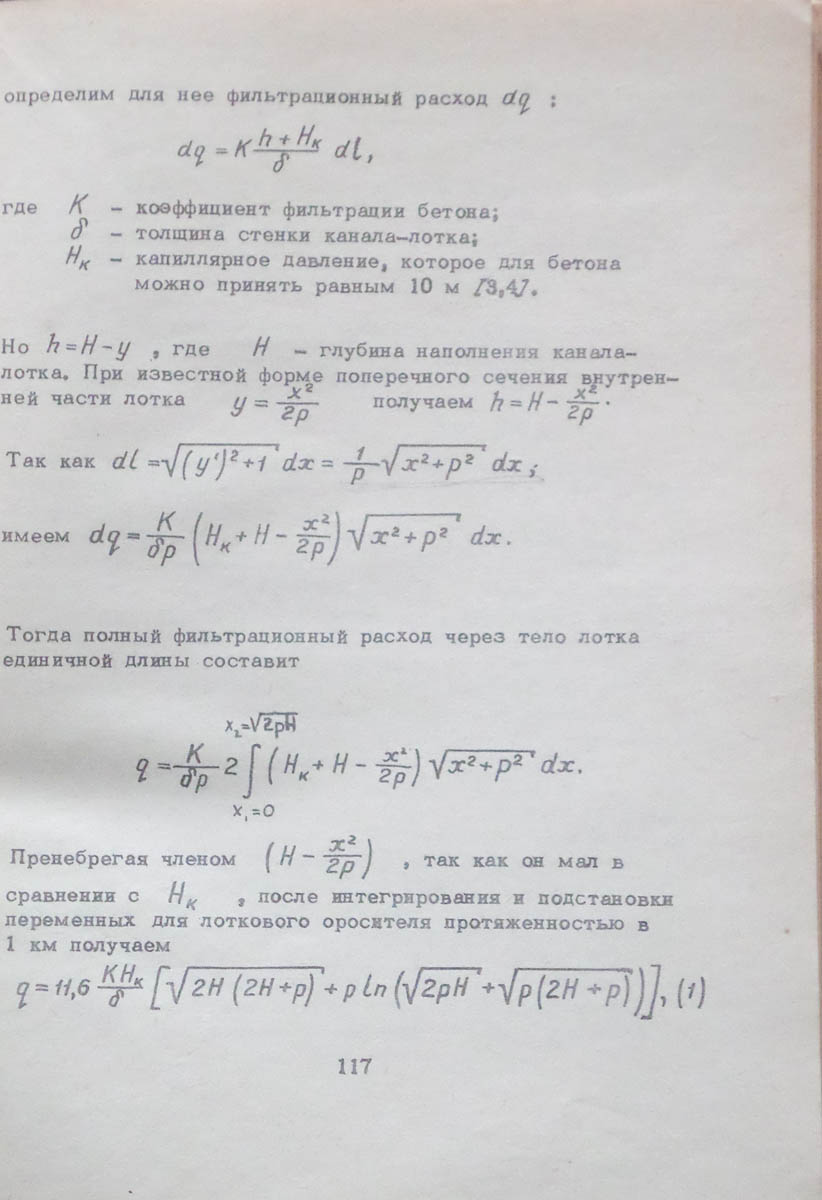 определим для нее фильтрационный расход dq :
dq = K (h + H_K)/δ dl,
где K – коэффициент фильтрации бетона;
δ – толщина стенки канала-лотка;
H_K – капиллярное давление, которое для бетона
можно принять равным 10 м [3,4].
Но h = H – y , где H – глубина наполнения канала-
лотка. При известной форме поперечного сечения внутрен-
ней части лотка y = x²/2p получаем h = H – x²/2p .
Так как dl = √((y')² + 1) dx = 1/p √(x² + p²) dx ;
имеем dq = K/δp (H_K + H – x²/2p) √(x² + p²) dx.
Тогда полный фильтрационный расход через тело лотка
единичной длины составит
x₂=√2pH
q = K/δp 2 ∫ (H_K + H – x²/2p) √(x² + p²) dx.
x₁=0
Пренебрегая членом (H – x²/2p) , так как он мал в
сравнении с H_K , после интегрирования и подстановки
переменных для лоткового оросителя протяженностью в
1 км получаем
q = 11,6 KH_K/δ [√(2H (2H+p)) + p ln (√(2pH) + √(p(2H + p)))], (1)
117